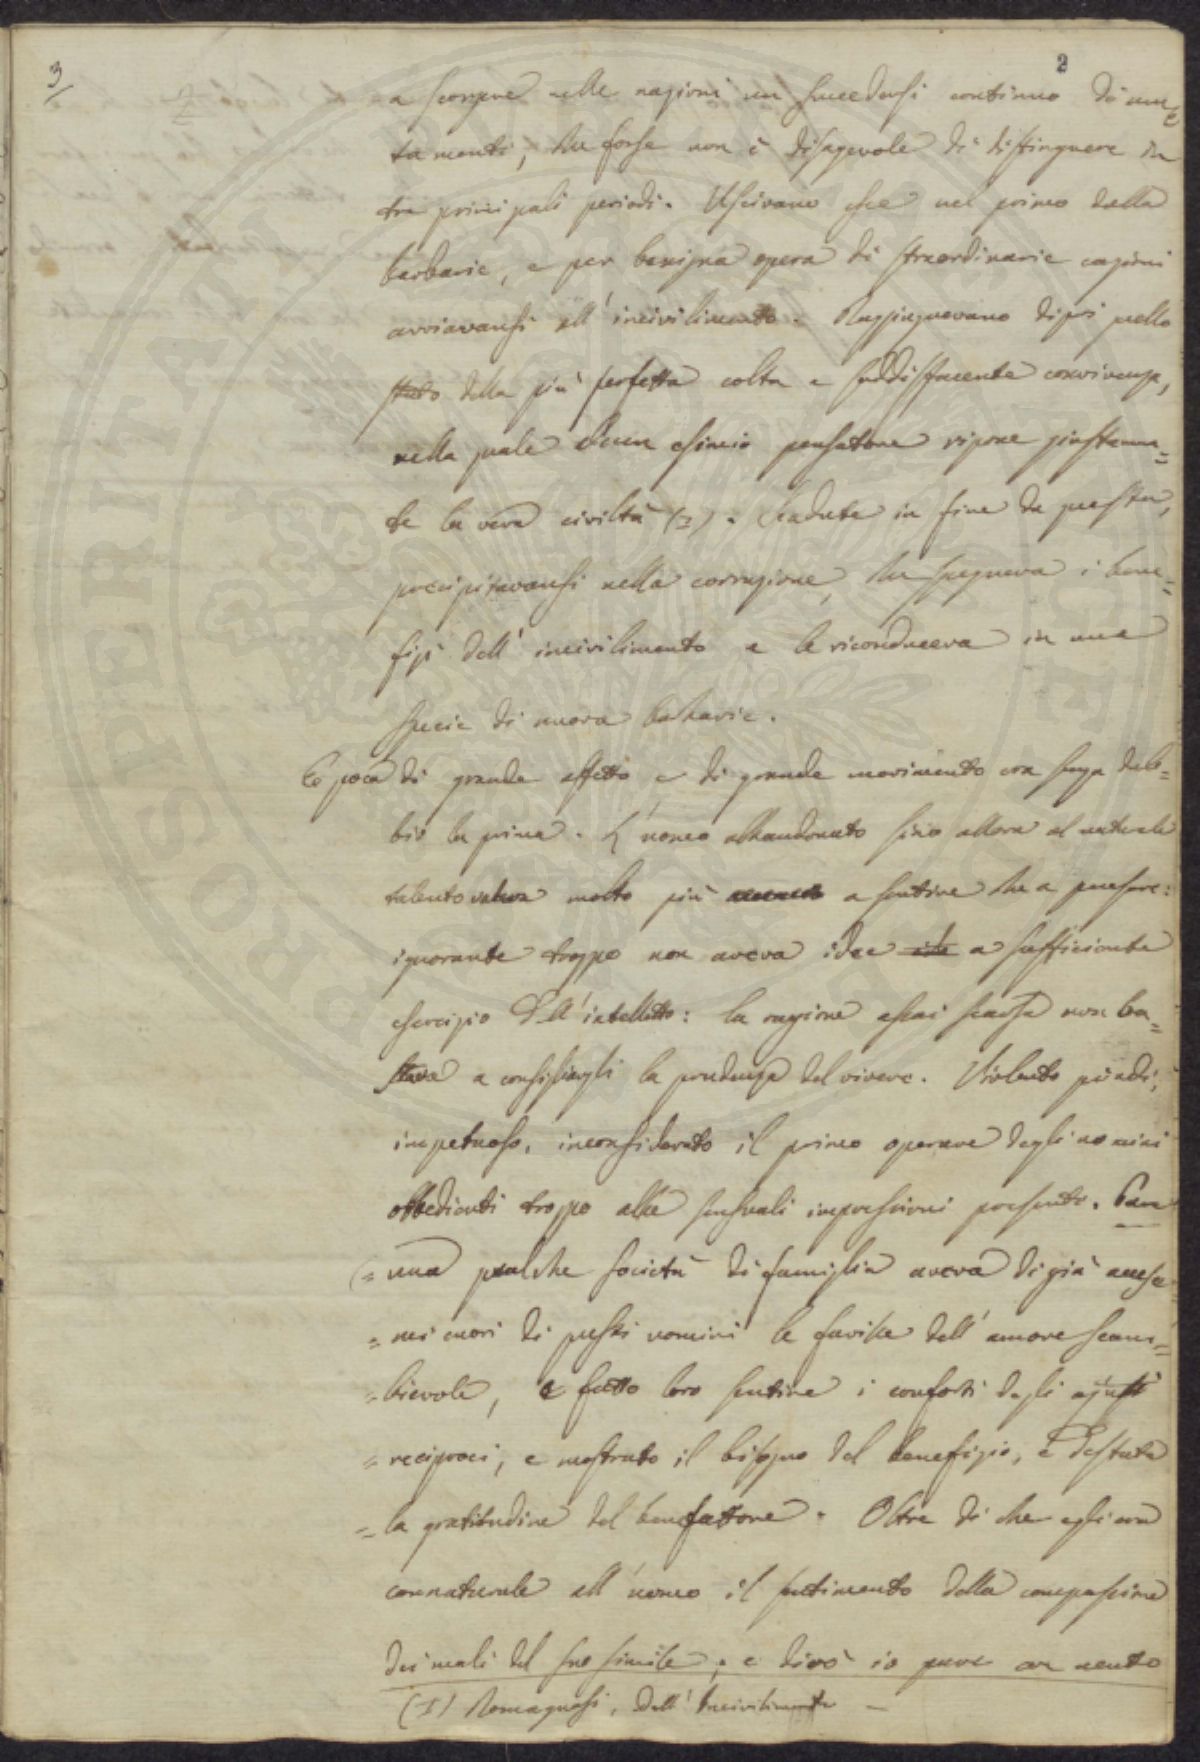 3
2
a scorgere nelle nazioni un succedersi continuo di mu=
tamenti, che forse non è disagevole di distinguere in
tre principali periodi. Uscivano esse nel primo dalla
barbarie, e per benigna opera di straordinarie cagioni
avviavansi all'incivilimento. Raggiugnevano dipoi quello
stato della più perfetta colta e soddisfacente convivenza,
nella quale un esimio pensatore ripone giustamen=
te la vera civiltà (1). Cadute in fine da questa,
precipitavansi nella corruzione, che spegneva i bene=
fizi dell'incivilimento e le riconduceva in una
specie di nuova barbarie.
Epoca di grande affetto e di grande movimento era senza dub=
bio la prima. L'uomo abbandonato sino allora al naturale
talento valeva molto più a sentire che a pensare:
ignorante troppo non aveva idee a sufficiente
esercizio dell'intelletto: la ragione assai scarsa non ba=
stava a consigliargli la prudenza del vivere. Violento quindi,
impetuoso, inconsiderato il primo operare degli uomini
obbedienti troppo alle sensuali impressioni presenti. Pure
=una qualche società di famiglia aveva di già accese
=nei cuori di questi uomini le faville dell'amore scam=
=bievole, e fatto loro sentire i conforti degli ajuti
=reciproci, e mostrato il bisogno del benefizio, e destata
=la gratitudine del benefattore. Oltre di che egli era
connaturale all'uomo il sentimento della compassione
dei mali del suo simile; e dirò io pure
(1) Romagnosi, Dell'Incivilimento
PROSPERITATI PUBLICAE